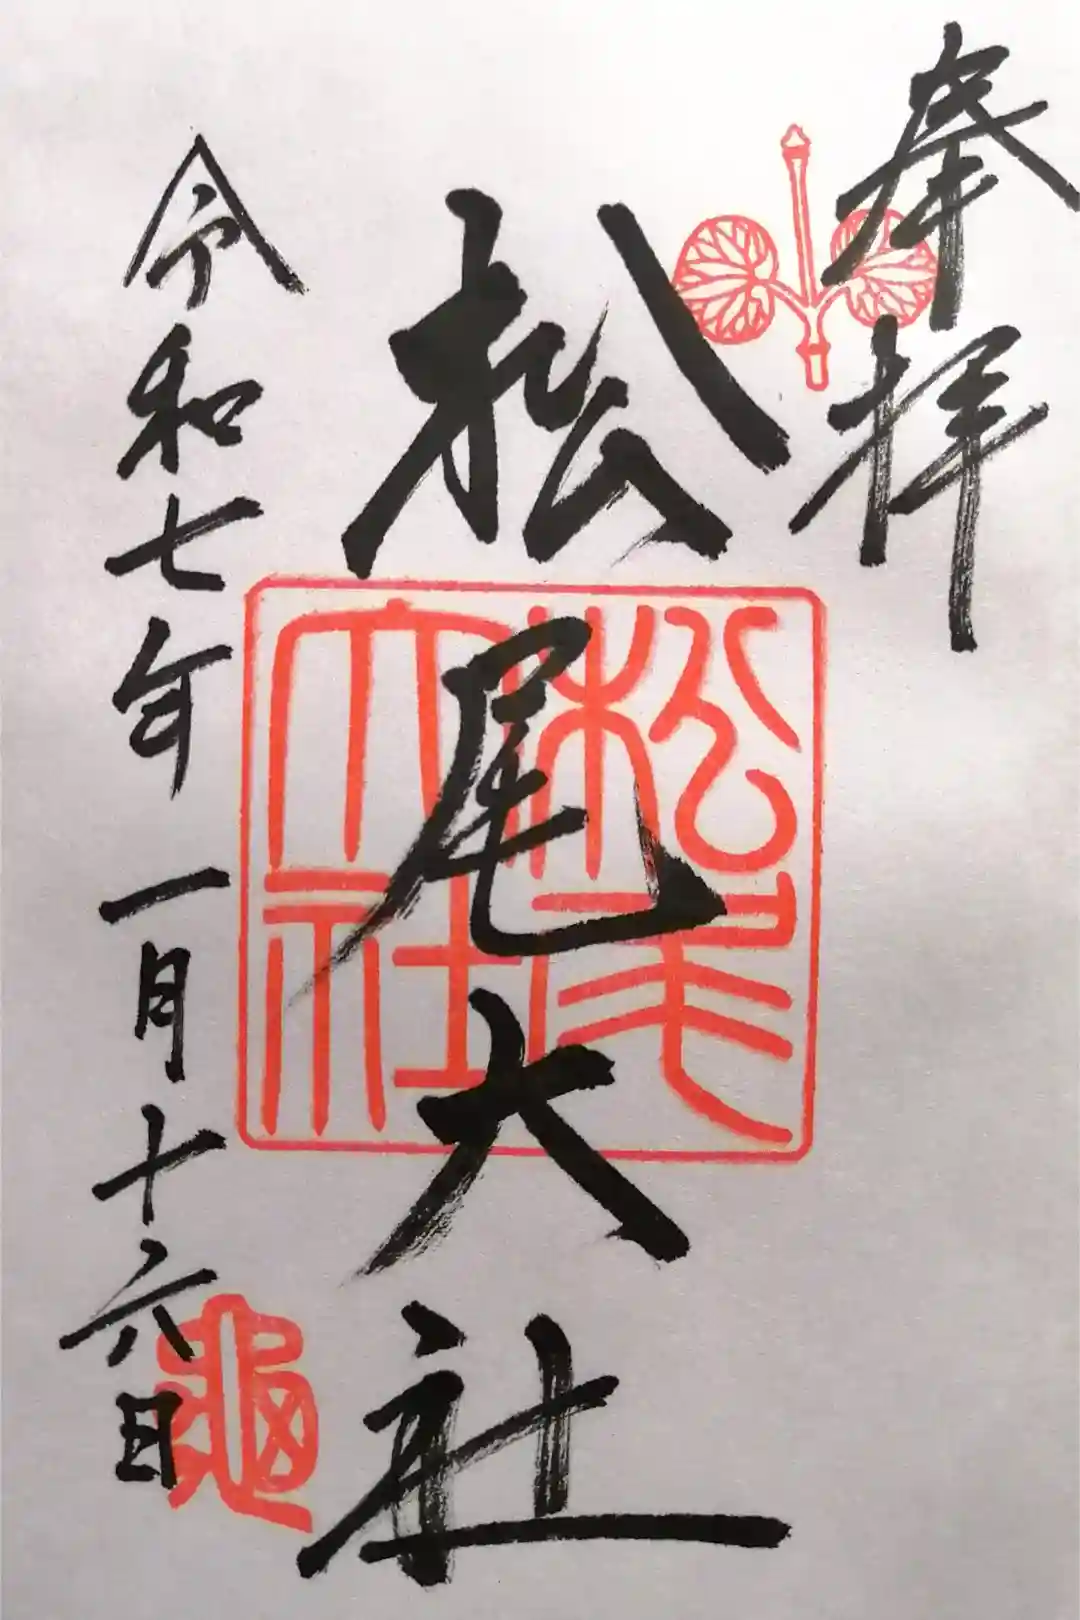 奉拝
松尾大社
松尾大社
令和七年一月十六日
龜